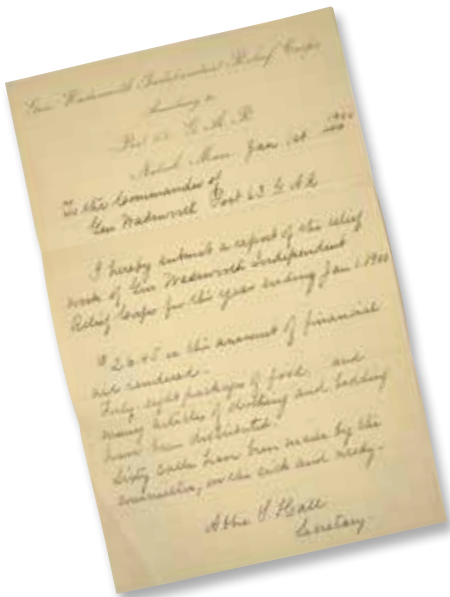 Gen. Wadsworth Independent Relief Corps
Auxiliary to
Post 63 G. A. R.
Natick, Mass. Jan 1st 1900
To the Commander of
Gen Wadsworth Post 63 G A R
I hereby submit a report of the relief
work of Gen Wadsworth Independent
Relief Corps for the year ending Jan 1. 1900
$26.45 is the amount of financial
aid rendered.
Forty-eight packages of food, and
many articles of clothing and bedding
have been distributed.
Sixty calls have been made by the
committee, on the sick and needy.
Abbie S. Hall
Secretary